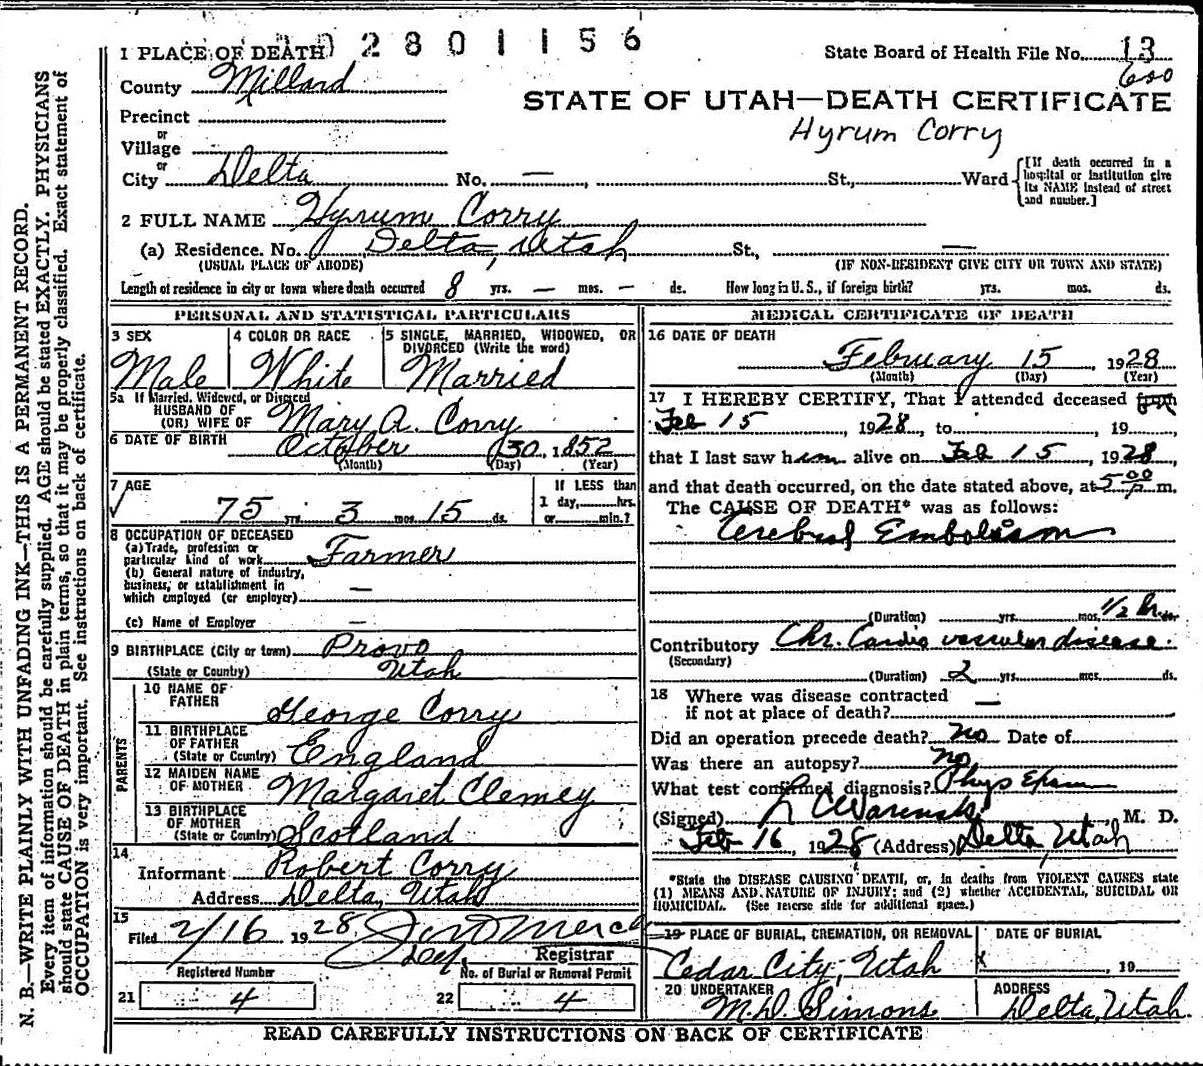 2801156
1 PLACE OF DEATH
State Board of Health File No. 13
600
County Millard
STATE OF UTAH—DEATH CERTIFICATE
Precinct
Hyrum Corry
or
Village
or
City Delta No. — , St., Ward
[If death occurred in a hospital or institution give its NAME instead of street and number.]
2 FULL NAME Hyrum Corry
(a) Residence. No. Delta, Utah St., —
(USUAL PLACE OF ABODE) (IF NON-RESIDENT GIVE CITY OR TOWN AND STATE)
Length of residence in city or town where death occurred 8 yrs. — mos. — ds. How long in U. S., if foreign birth? yrs. mos. ds.
PERSONAL AND STATISTICAL PARTICULARS
3 SEX
Male
4 COLOR OR RACE
White
5 SINGLE, MARRIED, WIDOWED, OR
DIVORCED (Write the word)
Married
5a If Married, Widowed, or Divorced
HUSBAND OF
(OR) WIFE OF Mary A. Corry
6 DATE OF BIRTH October 30, 1852
(Month) (Day) (Year)
7 AGE
75 yrs. 3 mos. 15 ds.
If LESS than
1 day, hrs.
or min.?
8 OCCUPATION OF DECEASED
(a) Trade, profession or
particular kind of work Farmer
(b) General nature of industry,
business, or establishment in
which employed (or employer) —
(c) Name of Employer —
9 BIRTHPLACE (City or town) Provo
(State or Country) Utah
PARENTS
10 NAME OF
FATHER George Corry
11 BIRTHPLACE
OF FATHER
(State or Country) England
12 MAIDEN NAME
OF MOTHER Margaret Clemey
13 BIRTHPLACE
OF MOTHER
(State or Country) Scotland
14
Informant Robert Corry
Address Delta, Utah
15
Filed 2/16 1928
Registrar
Registered Number No. of Burial or Removal Permit
21 4 22 4
MEDICAL CERTIFICATE OF DEATH
16 DATE OF DEATH
February 15 1928
(Month) (Day) (Year)
17 I HEREBY CERTIFY, That I attended deceased from
Feb 15, 1928, to , 19
that I last saw him alive on Feb 15, 1928,
and that death occurred, on the date stated above, at 5 00 P m.
The CAUSE OF DEATH* was as follows:
Cerebral Embolism
(Duration) yrs. mos. 1/2 hr. ds.
Contributory Chr. Cardio vascular disease.
(Secondary)
(Duration) 2 yrs. mos. ds.
18 Where was disease contracted
if not at place of death? —
Did an operation precede death? no Date of
Was there an autopsy? no
What test confirmed diagnosis? Phys Exam
(Signed) M. D.
Feb 16, 1928 (Address) Delta, Utah
*State the DISEASE CAUSING DEATH, or, in deaths from VIOLENT CAUSES state
(1) MEANS AND NATURE OF INJURY; and (2) whether ACCIDENTAL, SUICIDAL OR
HOMICIDAL. (See reverse side for additional space.)
19 PLACE OF BURIAL, CREMATION, OR REMOVAL
Cedar City, Utah
DATE OF BURIAL
X , 19
20 UNDERTAKER
M. D. Simons
ADDRESS
Delta, Utah.
READ CAREFULLY INSTRUCTIONS ON BACK OF CERTIFICATE
N. B.—WRITE PLAINLY WITH UNFADING INK—THIS IS A PERMANENT RECORD.
Every item of information should be carefully supplied. AGE should be stated EXACTLY. PHYSICIANS
should state CAUSE OF DEATH in plain terms, so that it may be properly classified. Exact statement of
OCCUPATION is very important. See instructions on back of certificate.